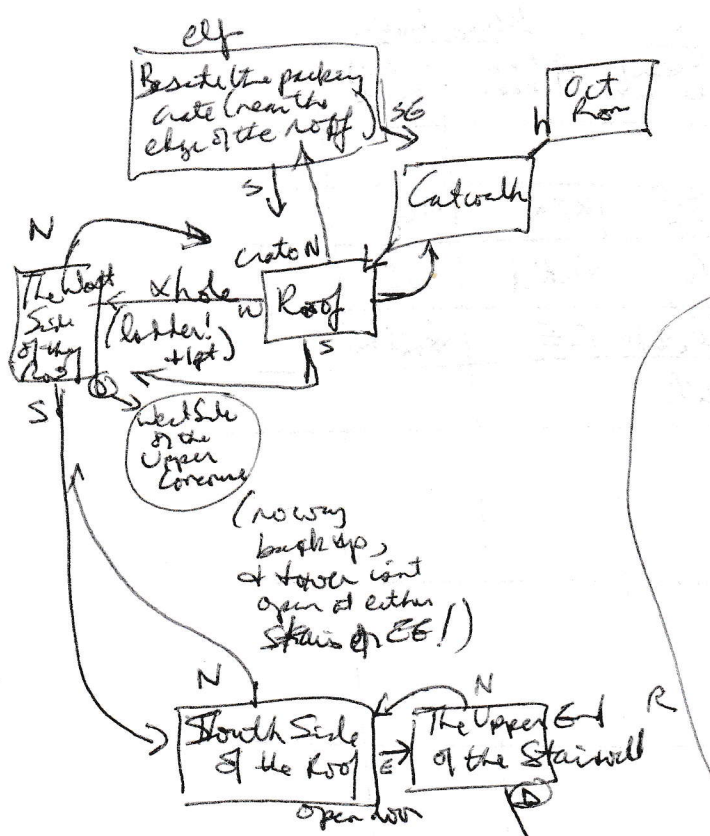 elf
Beside the packing
crate (near the
edge of the roof)
SE
S
Oct
Room
h
Catwalk
N
crate N
The West
Side
of the
Roof
x hole
W
Roof
(ladder!
+1pt)
S
D
S
West Side
of the
Upper
(no way
back up,
& tower isn't
open at either
Stairs or EE!)
N
N
South Side
of the Roof
E
The Upper End
of the Stairwell
R
open door
D